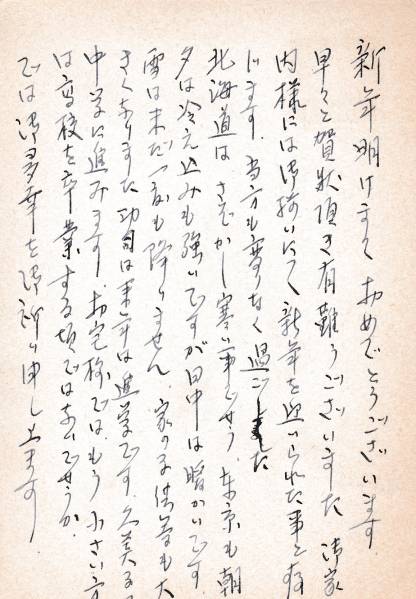 新年明けまして おめでとうございます
早々と賀状頂き有難うございました 御家
内様には御揃いにて新年を迎いられた事と存
じます。当方も変りなく過ごしました
北海道は さぞかし寒い事でせう。東京も朝
夕は冷え込みも強いですが日中は暖かいです
雪は未だ一度も降りません。家の子供等も大
きくなりました 功司は来年は進学です。久美子は
中学に進みます。お宅様ではもう小さい方
は高校を卒業する頃ではないでせうか。
では御多幸を御祈り申し上ます